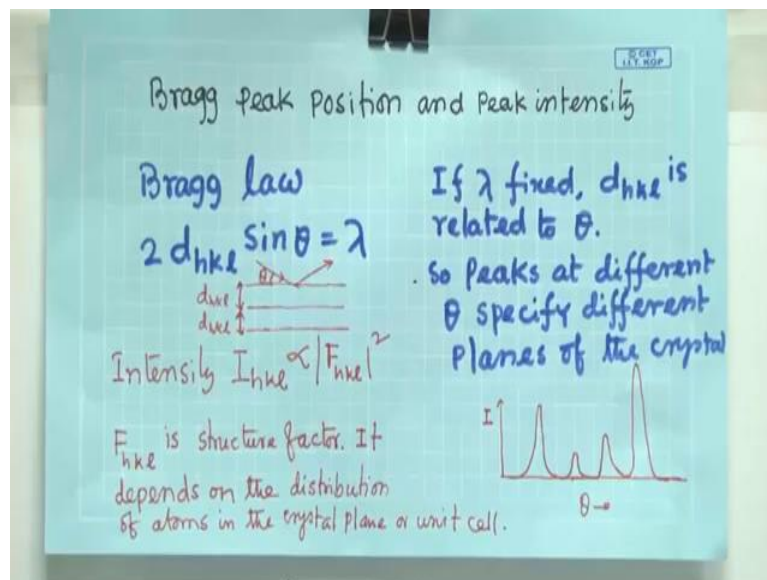 © CET
I.I.T. KGP
Bragg Peak Position and Peak intensity
Bragg law
2 dhkl sin θ = λ
θ
dhkl
dhkl
Intensity Ihkl ∝ |Fhkl|²
Fhkl is structure factor. It
depends on the distribution
of atoms in the crystal plane or unit cell.
If λ fixed, dhkl is
related to θ.
. So Peaks at different
θ specify different
Planes of the crystal
I
θ→